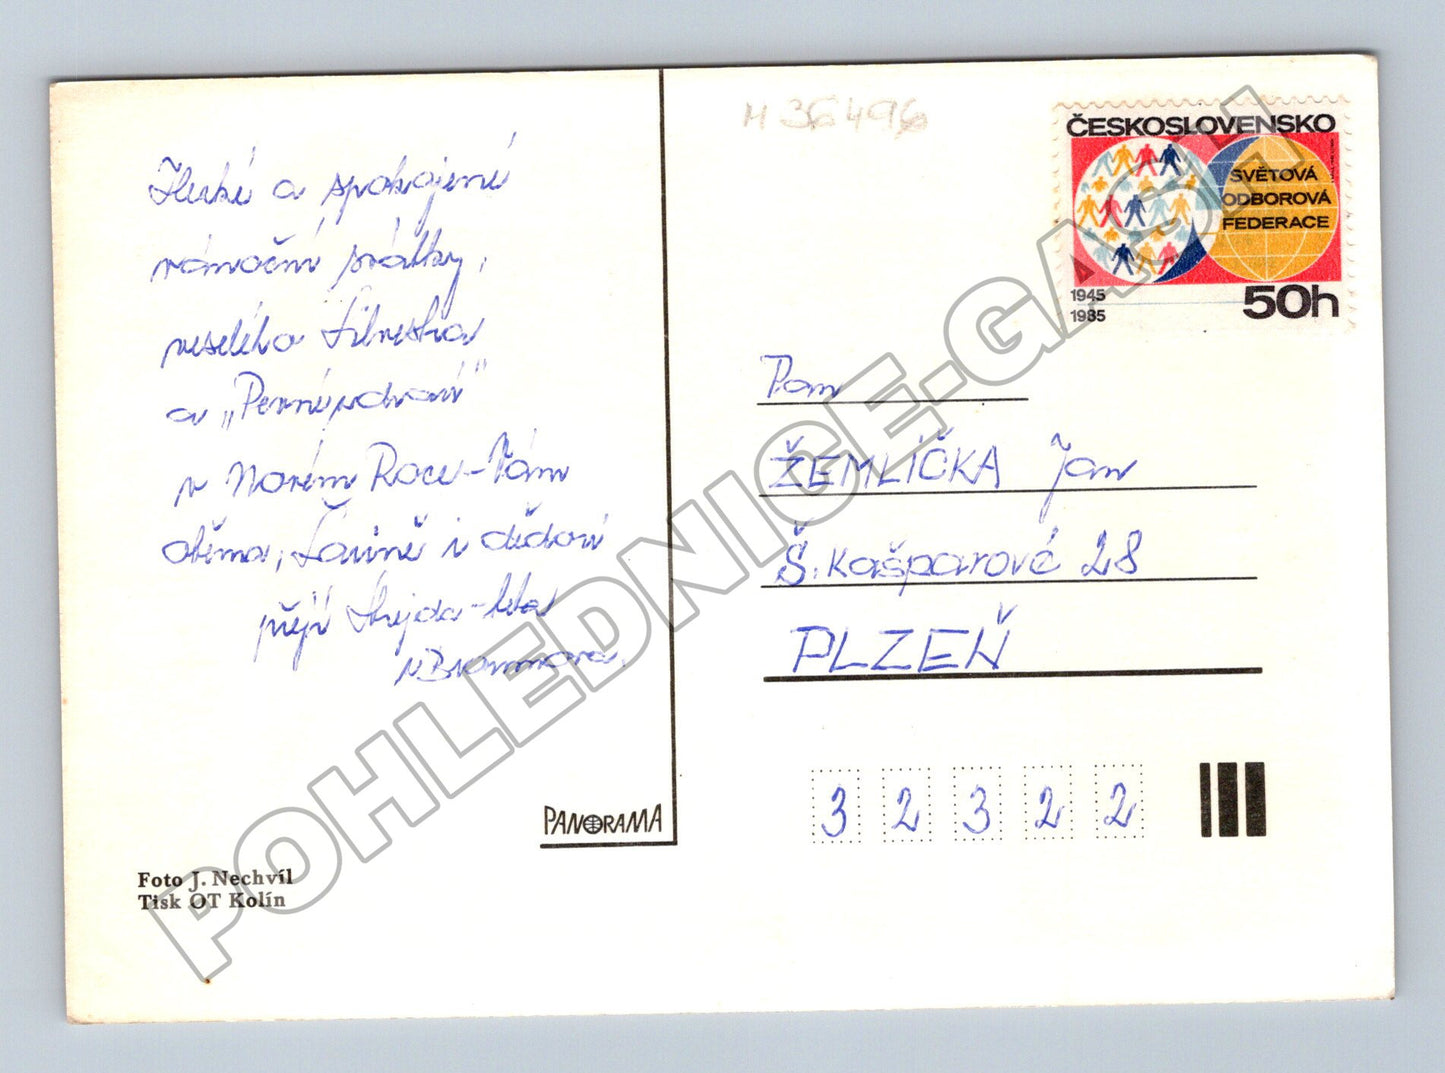 Hezké a spokojené
vánoční svátky,
veselého Silvestra
a „Pevné zdraví"
v Novém Roce - Vám
oběma, Šárině i dědovi
přejí Strejda - teta
z Brammova.
Foto J. Nechvíl
Tisk OT Kolín
PANORAMA
H 36496
ČESKOSLOVENSKO
SVĚTOVÁ
ODBOROVÁ
FEDERACE
1945
1985
50h
Pan
ŽEMLÍČKA Jan
Š. Kašparové 28
PLZEŇ
32322
POHLEDNICE-GAASH